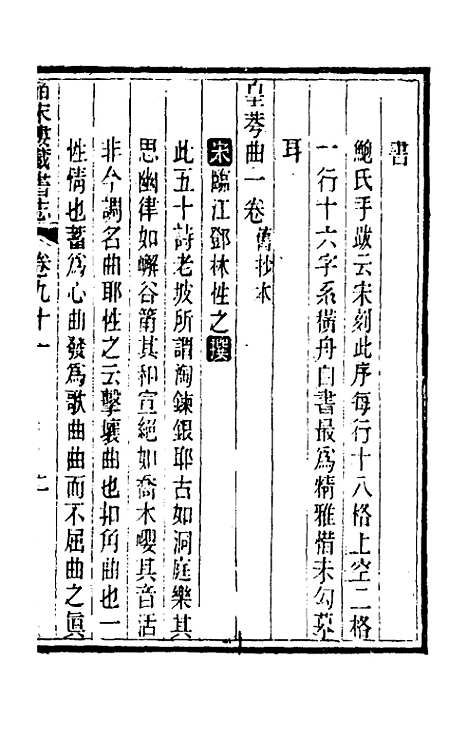 書
鮑氏手跋云宋刻此序每行十八格上空二格
一行十六字系橫舟自書最爲精雅惜未勾摹
耳
皇荂曲一卷 舊抄本
宋臨江鄧林性之撰
此五十詩老坡所謂淘鍊銀耶古如洞庭樂其
思幽律如嶰谷筩其和宣絕如喬木嚶其音活
非今調名曲耶性之云擊壤曲也扣角曲也一
性情也蓄爲心曲發爲歌曲曲而不屈曲之眞
皕宋樓藏書志 卷九十一